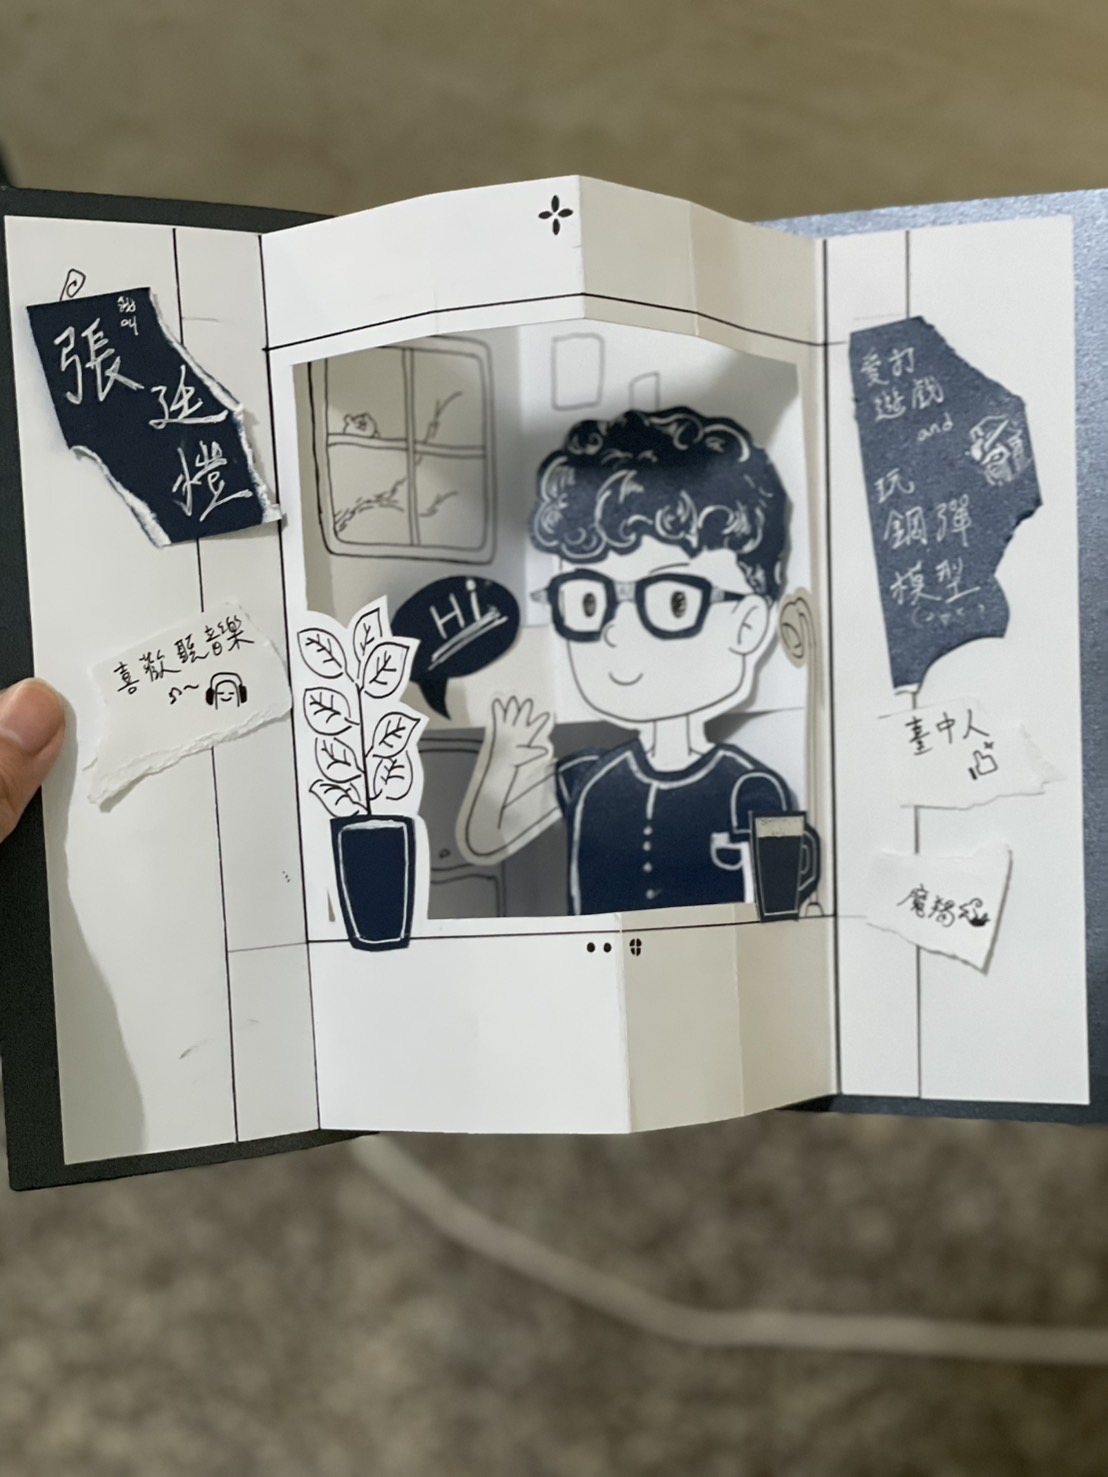 我叫
張
廷
愷
喜歡聽音樂
Hi
愛打
遊戲
and
玩
鋼彈
模型
臺中人
魔羯